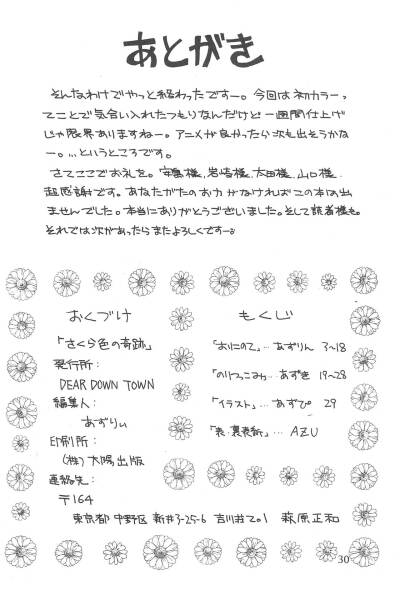 あとがき
そんなわけでやっと終わったですー。今回は初カラーっ
てことで気合い入れたつもりなんだけど一週間仕上げ
じゃ限界ありますねー。アニメが良かったら次も出そうかな
ー。…というところです。
さてここでお礼を。宇島様、岩崎様、太田様、山口様
超感謝です。あなたがたのお力がなければこの本は出
ませんでした。本当にありがとうございました。そして読者様も。
それでは次があったらまたよろしくですー。
おくづけ
「さくら色の奇跡」
発行所:
DEAR DOWN TOWN
編集人:
あずりぃ
印刷所:
(株)大陽出版
連絡先:
〒164
東京都中野区新井3-25-6 吉川荘201 萩原正和
もくじ
「おにのて」… あずりん 3~18
「のりつっこみっ」… あずき 19~28
「イラスト」… あずぴ 29
「表・裏表紙」… AZU
30